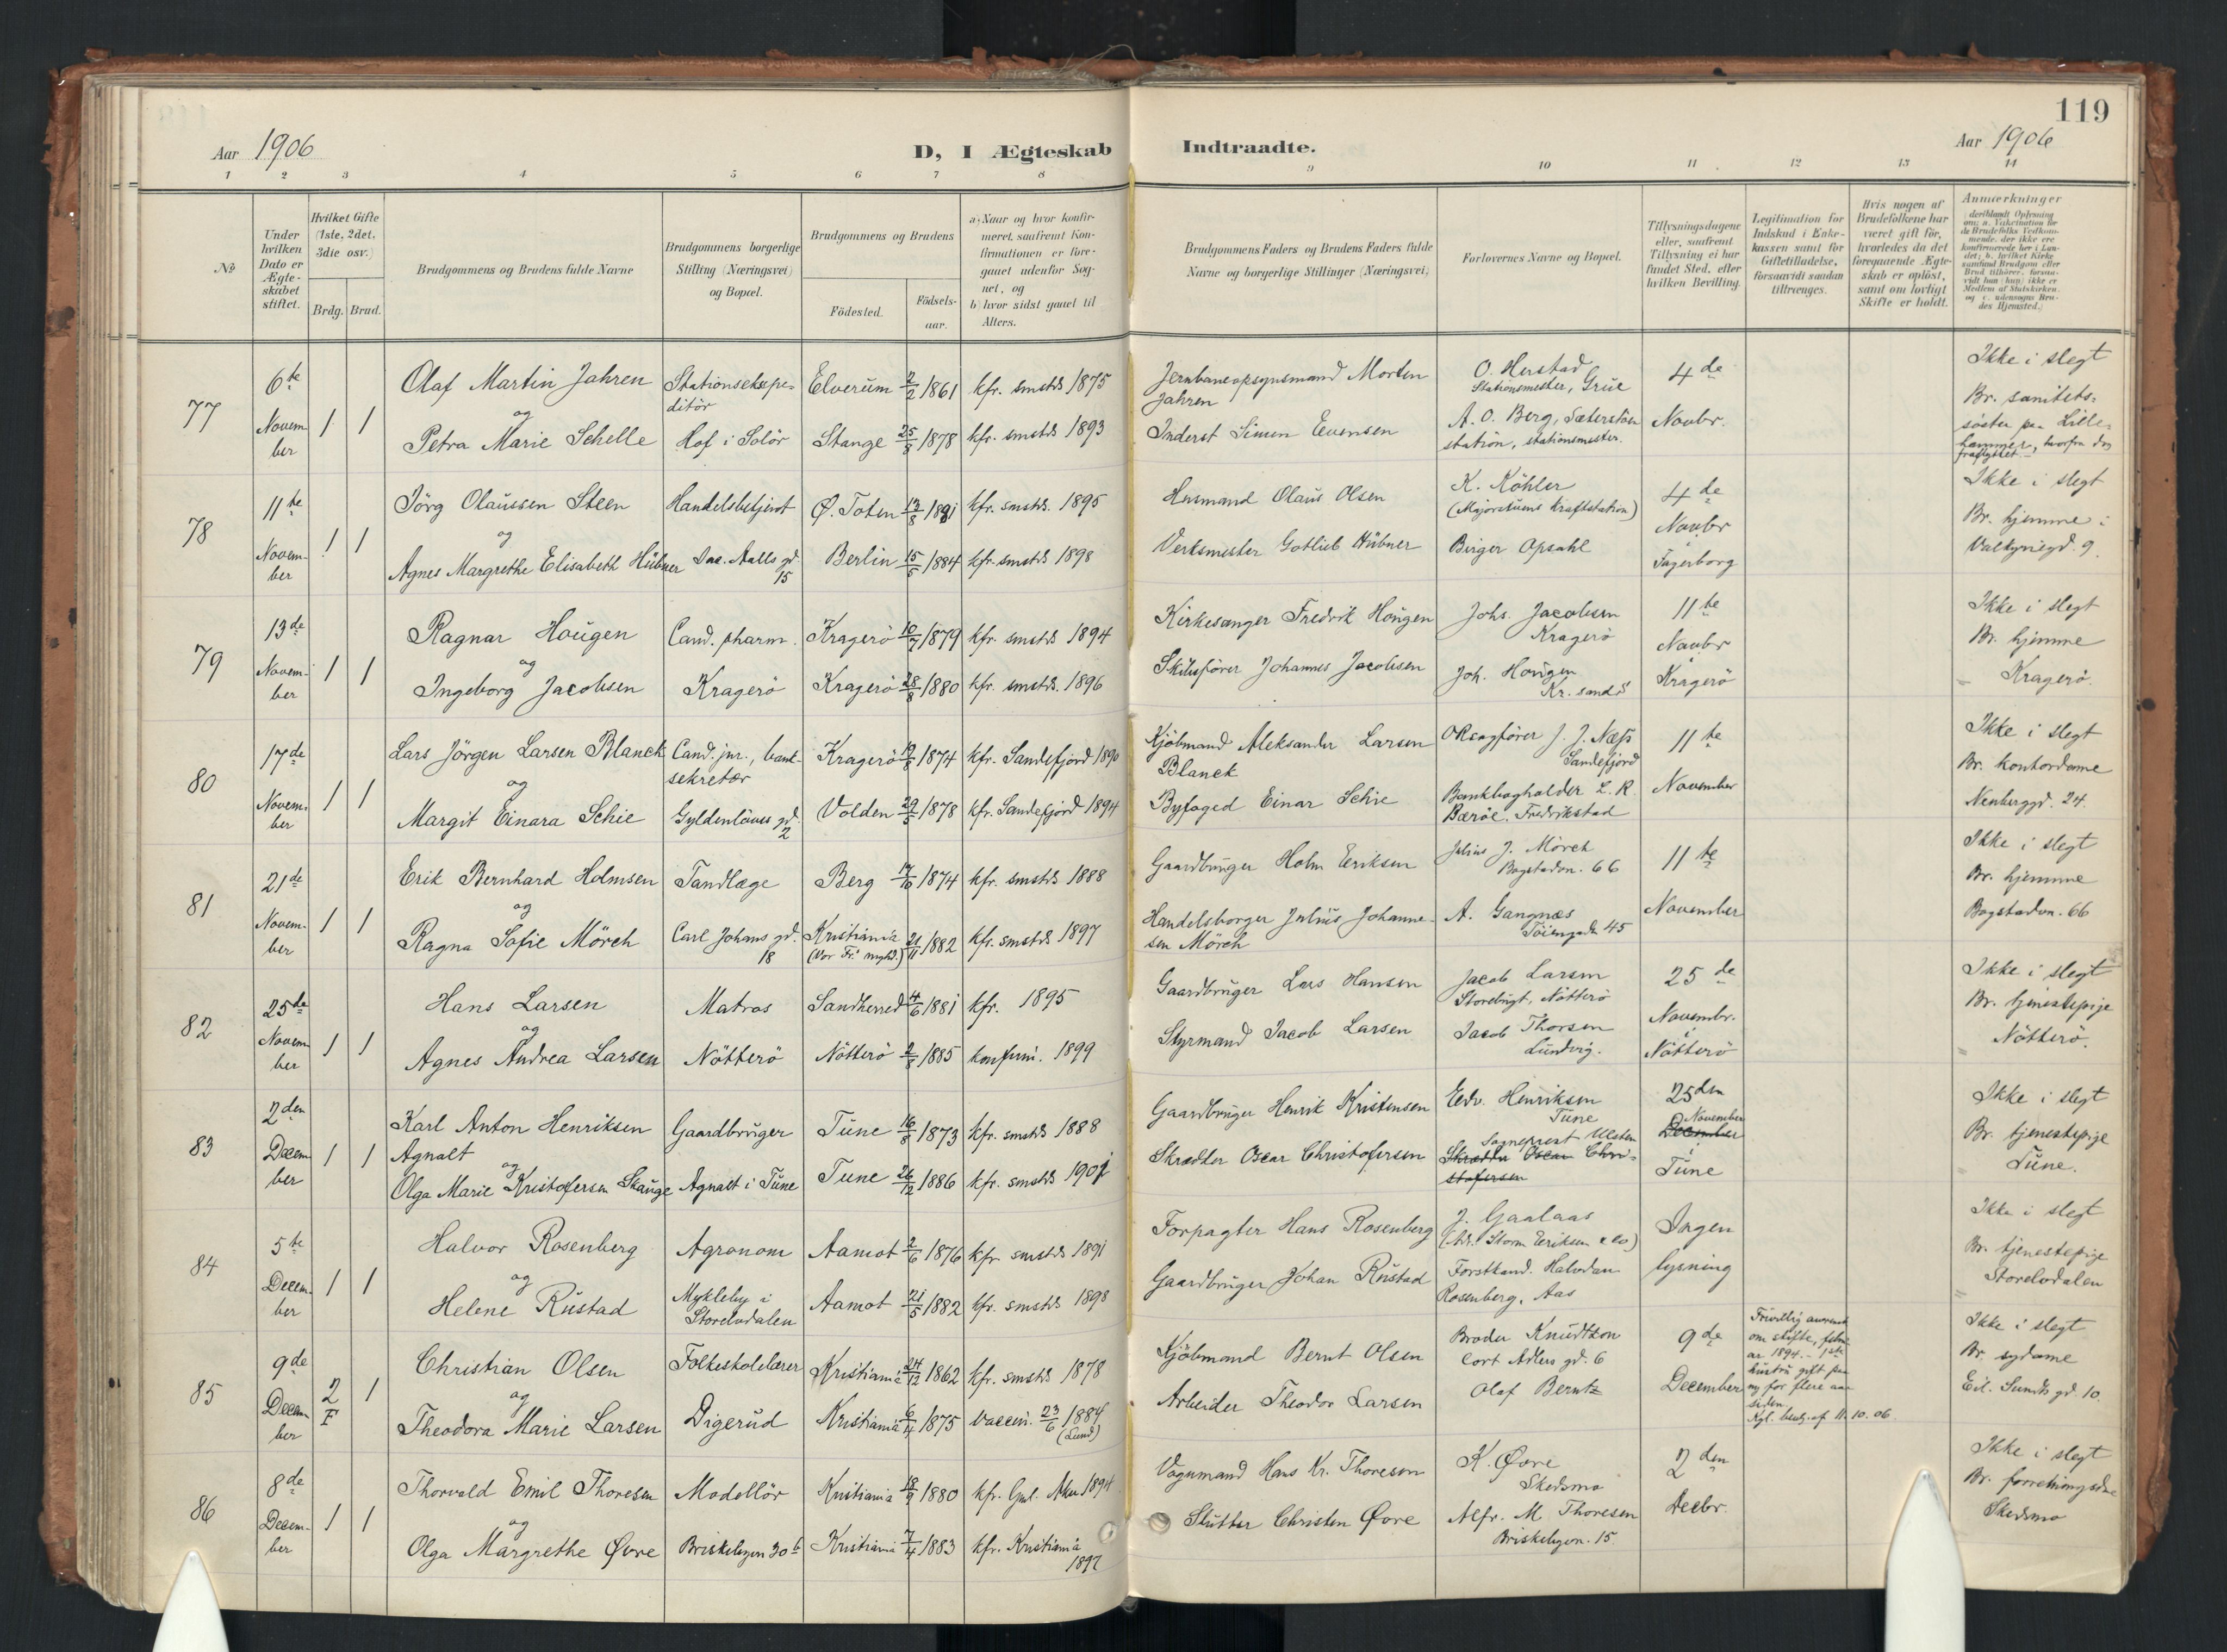 119
Aar 1906
D, I Ægteskab Indtraadte.
Aar 1906
1 2 3 4 5 6 7 8 9 10 11 12 13 14
№
Under hvilken Dato er Ægteskabet stiftet.
Hvilket Gifte (1ste, 2det, 3die osv.)
Brdg. Brud.
Brudgommens og Brudens fulde Navne
Brudgommens borgerlige Stilling (Næringsvei) og Bopæl.
Brudgommens og Brudens
Födested.
Födselsaar.
a) Naar og hvor konfirmeret, saafremt Konfirmationen er foregaaet udenfor Sognet, og
b) hvor sidst gaaet til Alters.
Brudgommens Faders og Brudens Faders fulde Navne og borgerlige Stillinger (Næringsvei)
Forlovernes Navne og Bopæl.
Tillysningsdagene eller, saafremt Tillysning ei har fundet Sted, efter hvilken Bevilling.
Legitimation for Indskud i Enkekassen samt for Giftetilladelse, forsaavidt saadan tiltrænges.
Hvis nogen af Brudefolkene har været gift för, hvorledes da det foregaaende Ægteskab er oplöst, samt om lovligt Skifte er holdt.
Anmærkninger
77
6te November
1 1
Olaf Martin Jahren
og
Petra Marie Schelle
Stationsekspeditör
Hof i Solör
Elverum 2/2 1861
Stange 25/8 1878
kfr. smstds 1875
kfr. smstds 1893
Jernbaneopsynsmand Morten Jahren
Inderst Simen Evensen
O. Herstad
Stationsmester, Grue
A. O. Berg, Sæterstöen
station, stationsmester.
4de
Novbr.
Ikke i slegt
Br. sanitets-
söster paa Lille-
hammer, hvorfra den
fraflyttet
78
11te November
1 1
Jörg Olaussen Steen
og
Agnes Margrethe Elisabeth Hübner
Handelsbetjent
Jac. Aalls gd. 15
Ø. Toten 13/8 1881
Berlin 15/5 1884
kfr. smstds. 1895
kfr. smstds 1898
Husmand Olaus Olsen
Verksmester Gotlieb Hübner
K. Köhler
(Majorstuens kraftstation)
Birger Opsahl
4de
Novbr
i
Fagerborg
Ikke i slegt
Br. hjemme i
Valkyriegd. 9.
79
13de November
1 1
Ragnar Hougen
og
Ingeborg Jacobsen
Cand. pharm.
Kragerö
Kragerö 10/7 1879
Kragerö 28/8 1880
kfr. smstds 1894
kfr. smstds. 1896
Kirkesanger Fredrik Hougen
Skibsförer Johannes Jacobsen
Johs. Jacobsen
Kragerö
Joh. Hougen
Kr. sands
11te
Novbr
i
Kragerö
Ikke i slegt
Br. hjemme
Kragerö.
80
17de November
1 1
Lars Jörgen Larsen Blanck
og
Margit Einara Schie
Cand. jur., bank-
sekretær
Gyldenlöves gd. 2
Kragerö 1874
Volden 29/5 1878
kfr. Sandefjord 1890
kfr. Sandefjord 1894
Kjöbmand Aleksander Larsen
Blanck
Byfoged Einar Schie
ORsagförer J. J. Næss
Sandefjord
Bankbogholder L. R.
Bæröe. Fredrikstad
11te
November
Ikke i slegt
Br. kontordame
Neuberggd. 24.
81
21de November
1 1
Erik Bernhard Holmsen
og
Ragna Sofie Mörch
Tandlæge
Carl Johans gd. 18
Berg 17/10 1874
Kristiania 21/11 1882
kfr. smstds 1888
kfr. smstds 1897
Gaardbruger Holm Eriksen
Handelsborger Julius Johanne-
sen Mörch
Julius J. Mörch
Bogstadvn. 66
A. Gangnæs
Töiengaden 45
11te
November
Ikke i slegt
Br. hjemme
Bogstadvn. 66
82
25de November
1 1
Hans Larsen
og
Agnes Andrea Larsen
Matros
Nötterö
Sandherred 4/6 1881
Nötterö 2/8 1885
kfr. 1895
konfirm. 1899
Gaardbruger Lars Hansen
Styrmand Jacob Larsen
Jacob Larsen
Storebrygt, Nötterö
Jacob Thorsen
Lundvig.
25de
Novembr.
i
Nötterö
Ikke i slegt
Br. tjenestepige
Nötterö.
83
2den December
1 1
Karl Anton Henriksen
Agnalt
og
Olga Marie Kristofersen Skauge
Gaardbruger
Agnalt i Tune
Tune 16/8 1873
Tune 26/12 1886
kfr. smstds 1888
kfr. smstds 1901
Gaardbruger Henrik Kristensen
Skrædder Oscar Christofersen
Edv. Henriksen
Tune
Sogneprest
Skrædder Oscar Chri-
stofersen
25den
November
December
i
Tune
Ikke i slegt
Br. tjenestepige
Tune.
84
5te December
1 1
Halvor Rosenberg
og
Helene Rustad
Agronom
Mykleby i
Storelvdalen
Aamot 2/6 1876
Aamot 21/5 1882
kfr smstds 1891
kfr. smstds 1898
Forpagter Hans Rosenberg
Gaardbruger Johan Rustad
J. Gaalaas
(Adr. Storm Eriksen & co)
Forstkand. Halvdan
Rosenberg, Aas
Ingen
lysning
Ikke i slegt
Br. tjenestepige
Storelvdalen
85
9de December
2 F 1
Christian Olsen
og
Theodora Marie Larsen
Folkeskolelærer
Digerud
Kristiania 24/12 1862
Kristiania 6/4 1875
kfr. smstds 1878
vaccin. 23/6 1884
(Lund)
Kjöbmand Bernt Olsen
Arbeider Theodor Larsen
Broder Knudtzon
Cort Adlers gd. 6
Olaf Berntz
9de
December
om skifte, febru-
ar 1894. – 1ste
hustru gift paa
ny for flere aar
siden.
Kgl. bevg. af 11.10.06.
Ikke i slegt
Br. sydame
Eil. Sunds gd. 10
86
8de December
1 1
Thorvald Emil Thoresen
og
Olga Margrethe Øvre
Modellör
Briskebyvn 30 b
Kristiania 18/9 1880
Kristiania 7/4 1883
kfr. Gml. Aker 1894
kfr. Kristiania
1897
Vognmand Hans Kr. Thoresen
Slutter Christen Øvre
K. Øvre
Skedsmo
Alfr. M Thoresen
Briskebyvn. 15
2den
Decbr.
Ikke i slegt
Br. forretningsdame
Skedsmo